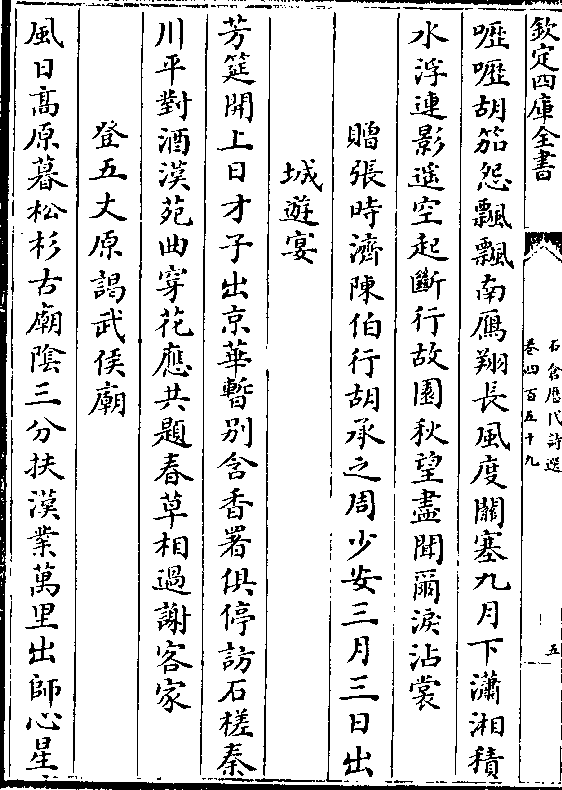 欽定四庫全書
石倉歷代詩選
卷四百五十九
五
嚦嚦胡笳怨飄飄南鴈翔長風度關塞九月下瀟湘積
水浮連影遙空起斷行故園秋望盡聞爾淚沾裳
贈張時濟陳伯行胡承之周少安三月三日出
城遊宴
芳筵開上日才子出京華暫别含香署俱停訪石槎秦
川平對酒漢苑曲穿花應共題春草相過謝客家
登五丈原謁武侯廟
風日高原暮松杉古廟陰三分扶漢業萬里出師心星